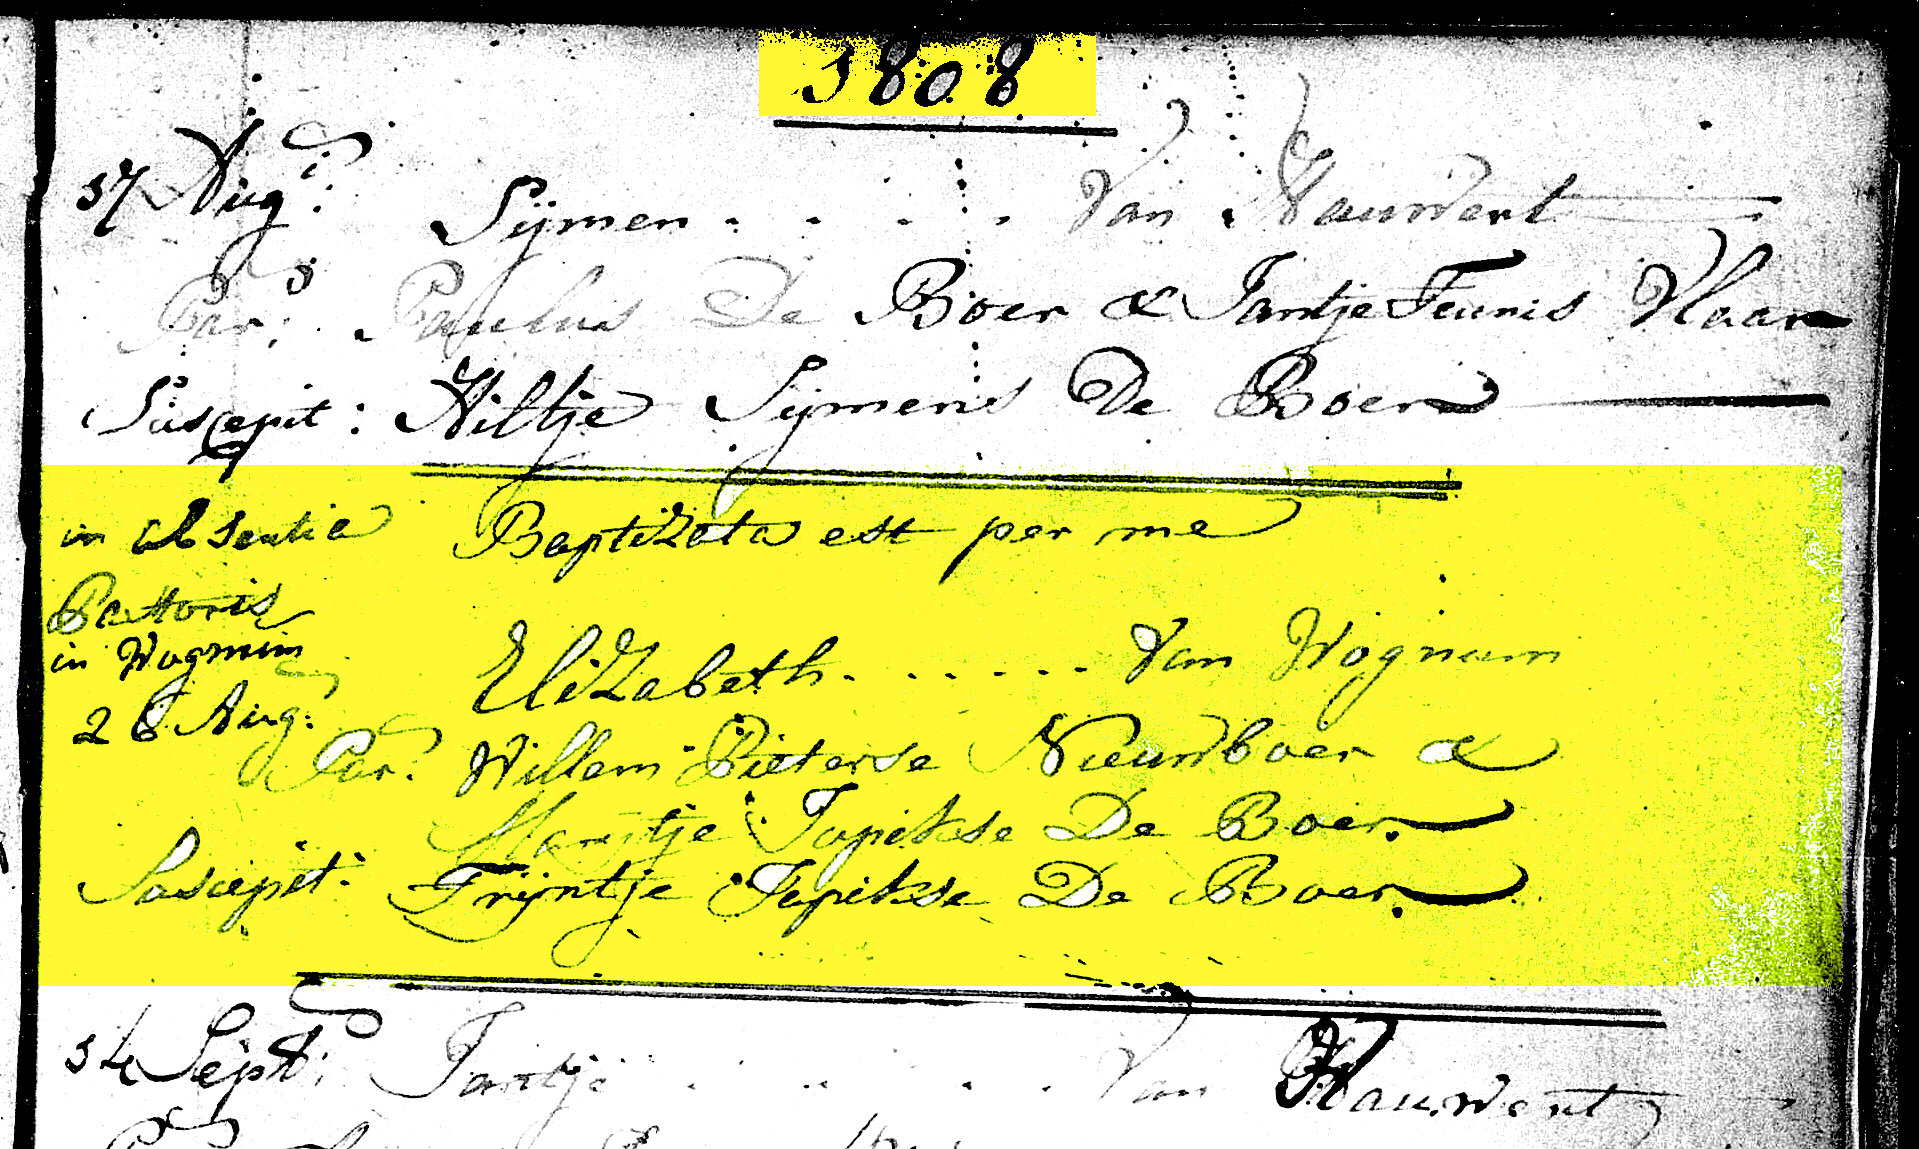 1808
17 Aug: Sijmen . . . . . Van Hauwert
Par: Paulus De Boer & Jantje Teunis Vlaar
Suscepit: Hiltje Sijmens De Boer
in absentia Baptizata est per me
Pastoris
in Wognum Elizabeth . . . . . . Van Wognum
26 Aug:
Par: Willem Pieterse Nieuwboer &
Marijtje Jopikse De Boer.
Suscepit: Trijntje Jopikse De Boer.
14 Sept: Jantje . . . . . Van Hauwert